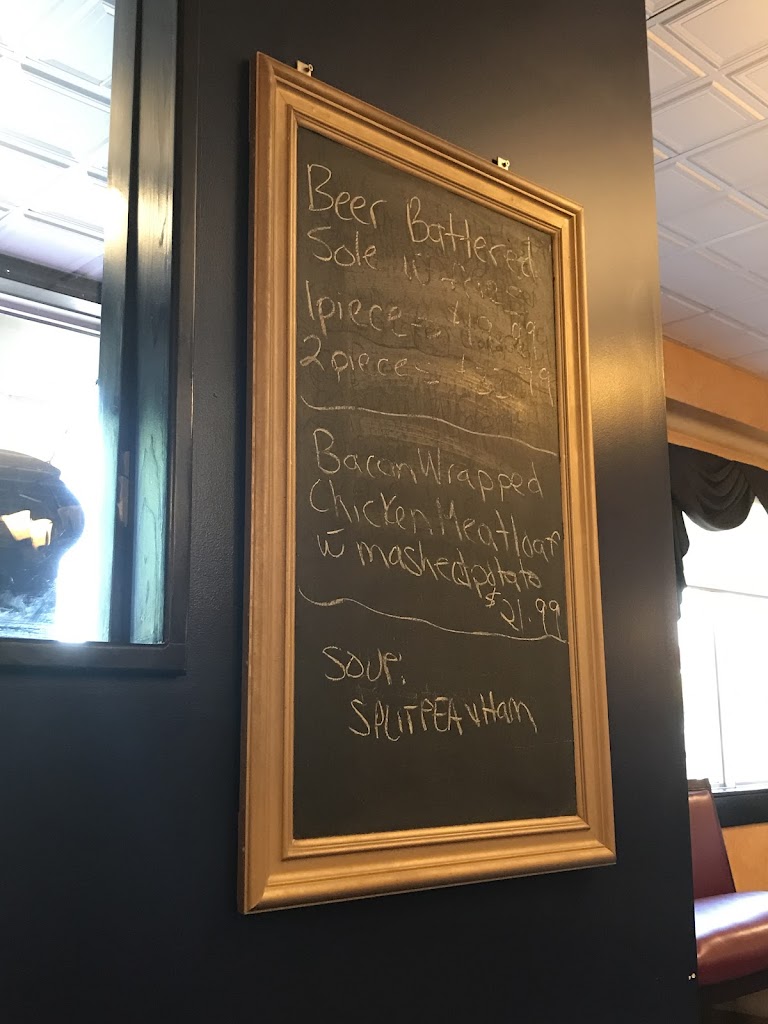 Beer Battered
Sole w fries
1 piece - $18.99
2 piece -
Bacon Wrapped
Chicken Meatloaf
w mashed potato
$21.99
SOUP:
SPLIT PEA + Ham